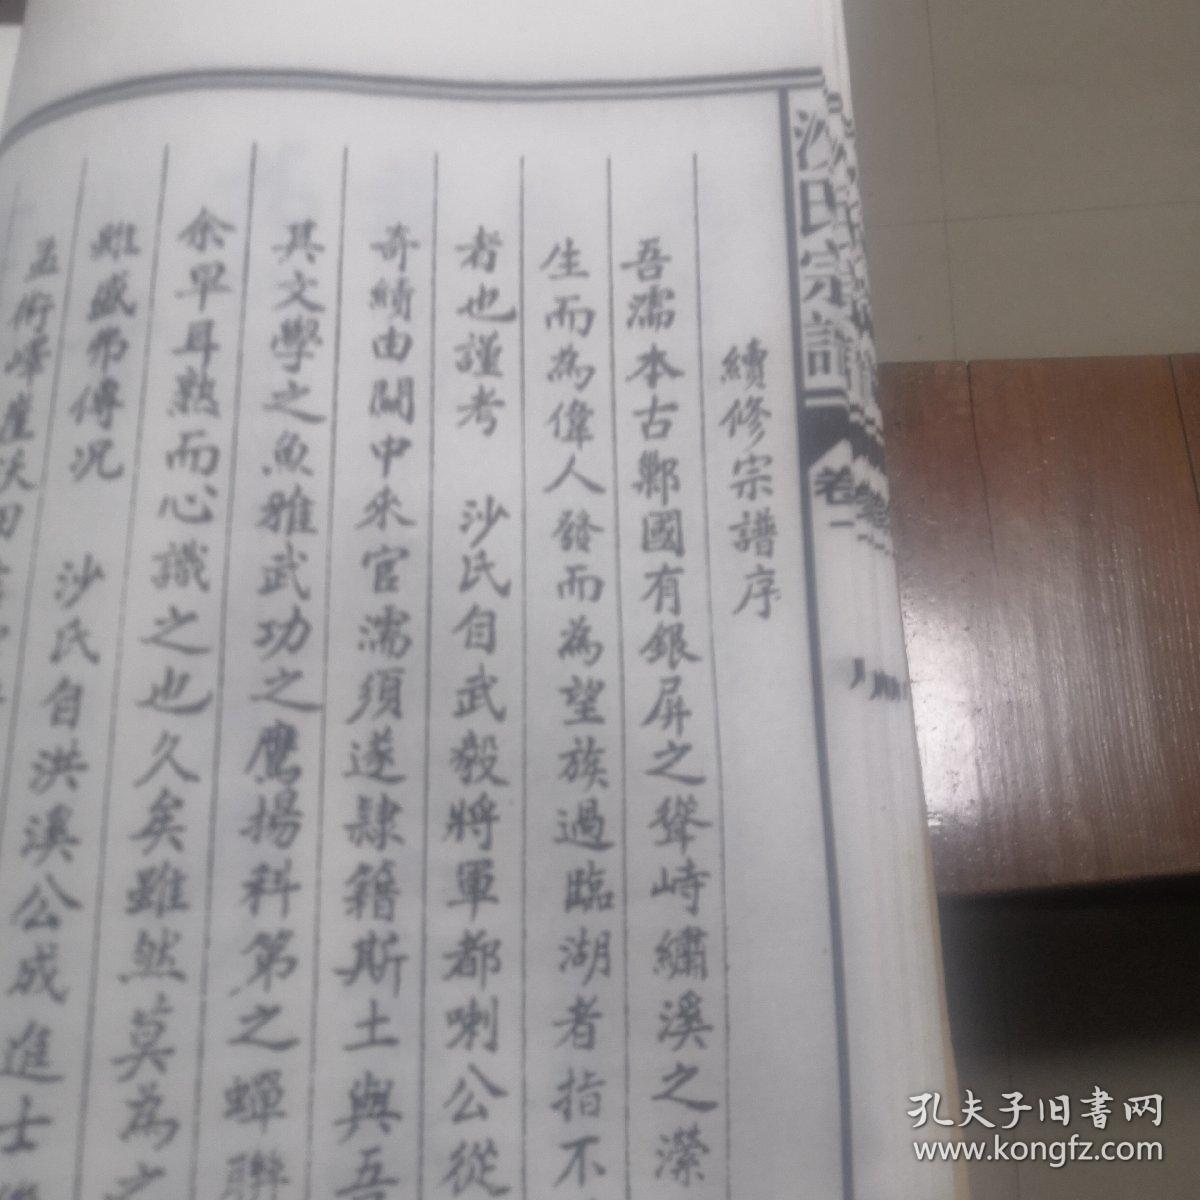 沙氏宗譜
卷一
續修宗譜序
吾濡本古鄛國有銀屏之聳峙繡溪之瀠
生而為偉人發而為望族過臨湖者指不
者也謹考 沙氏自武毅將軍都喇公從
奇績由關中來官濡須遂隸籍斯土與吾
其文學之魚雅武功之鷹揚科第之蟬聯
余早耳熟而心識之也久矣雖然莫為之
雖盛弗傳况 沙氏自洪溪公成進士
孔夫子旧書网
www.kongfz.com